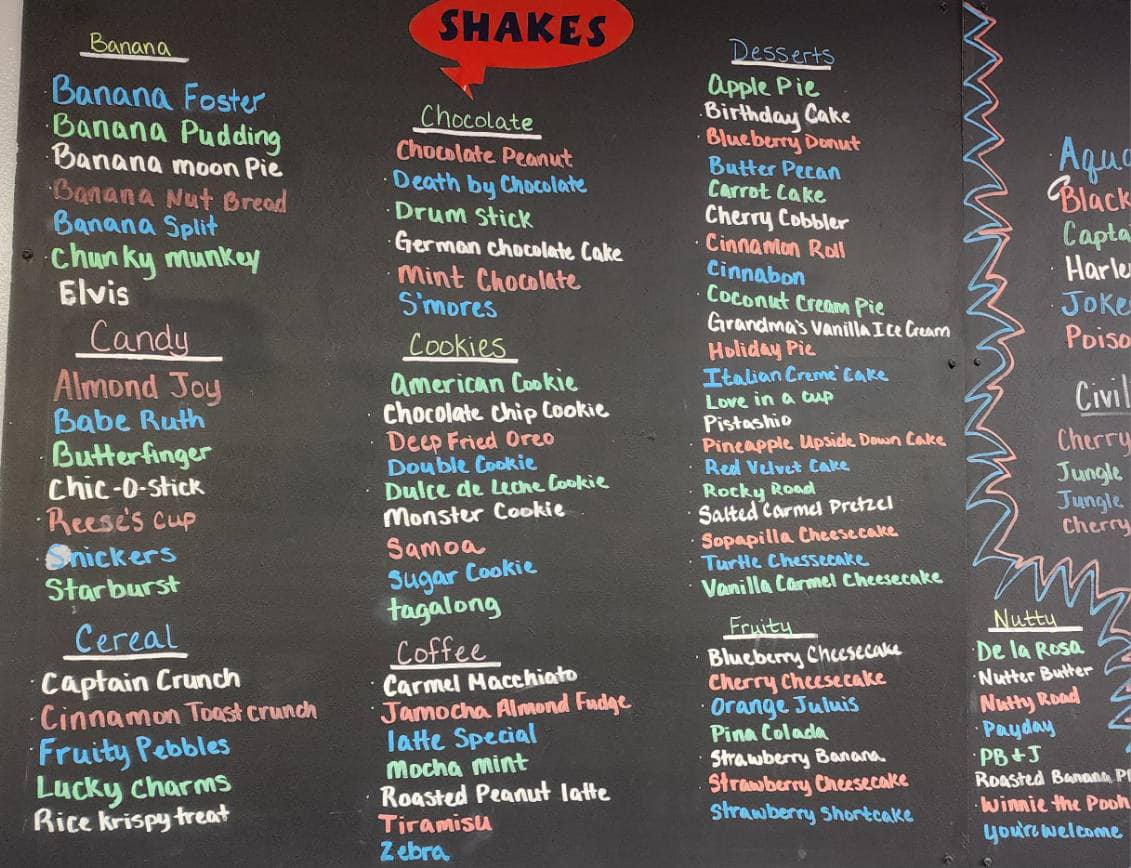 SHAKES
Banana
Banana Foster
Banana Pudding
Banana moon Pie
Banana Nut Bread
Banana Split
Chunky munkey
Elvis
Candy
Almond Joy
Babe Ruth
Butterfinger
Chic-O-Stick
Reese's cup
Snickers
Starburst
Cereal
Captain Crunch
Cinnamon Toast crunch
Fruity Pebbles
Lucky charms
Rice krispy treat
Chocolate
Chocolate Peanut
Death by Chocolate
Drum Stick
German chocolate Cake
Mint Chocolate
S'mores
Cookies
American Cookie
Chocolate chip Cookie
Deep Fried Oreo
Double Cookie
Dulce de Leche Cookie
Monster Cookie
Samoa
Sugar Cookie
tagalong
Coffee
Carmel Macchiato
Jamocha Almond Fudge
latte Special
Mocha mint
Roasted Peanut latte
Tiramisu
Zebra
Desserts
Apple Pie
Birthday Cake
Blueberry Donut
Butter Pecan
Carrot Cake
Cherry Cobbler
Cinnamon Roll
Cinnabon
Coconut Cream Pie
Grandma's Vanilla Ice Cream
Holiday Pie
Italian Creme' Cake
Love in a cup
Pistashio
Pineapple Upside Down Cake
Red Velvet Cake
Rocky Road
Salted Carmel Pretzel
Sopapilla Cheesecake
Turtle Chessecake
Vanilla Carmel Cheesecake
Fruity
Blueberry Cheesecake
Cherry Cheesecake
Orange Juluis
Pina Colada
Strawberry Banana
Strawberry Cheesecake
Strawberry Shortcake
Nutty
De la Rosa
Nutter Butter
Nutty Road
Payday
PB+J
Roasted Banana
Winnie the Pooh
you're welcome
Black
Civil
Cherry
Jungle
Jungle
Cherry